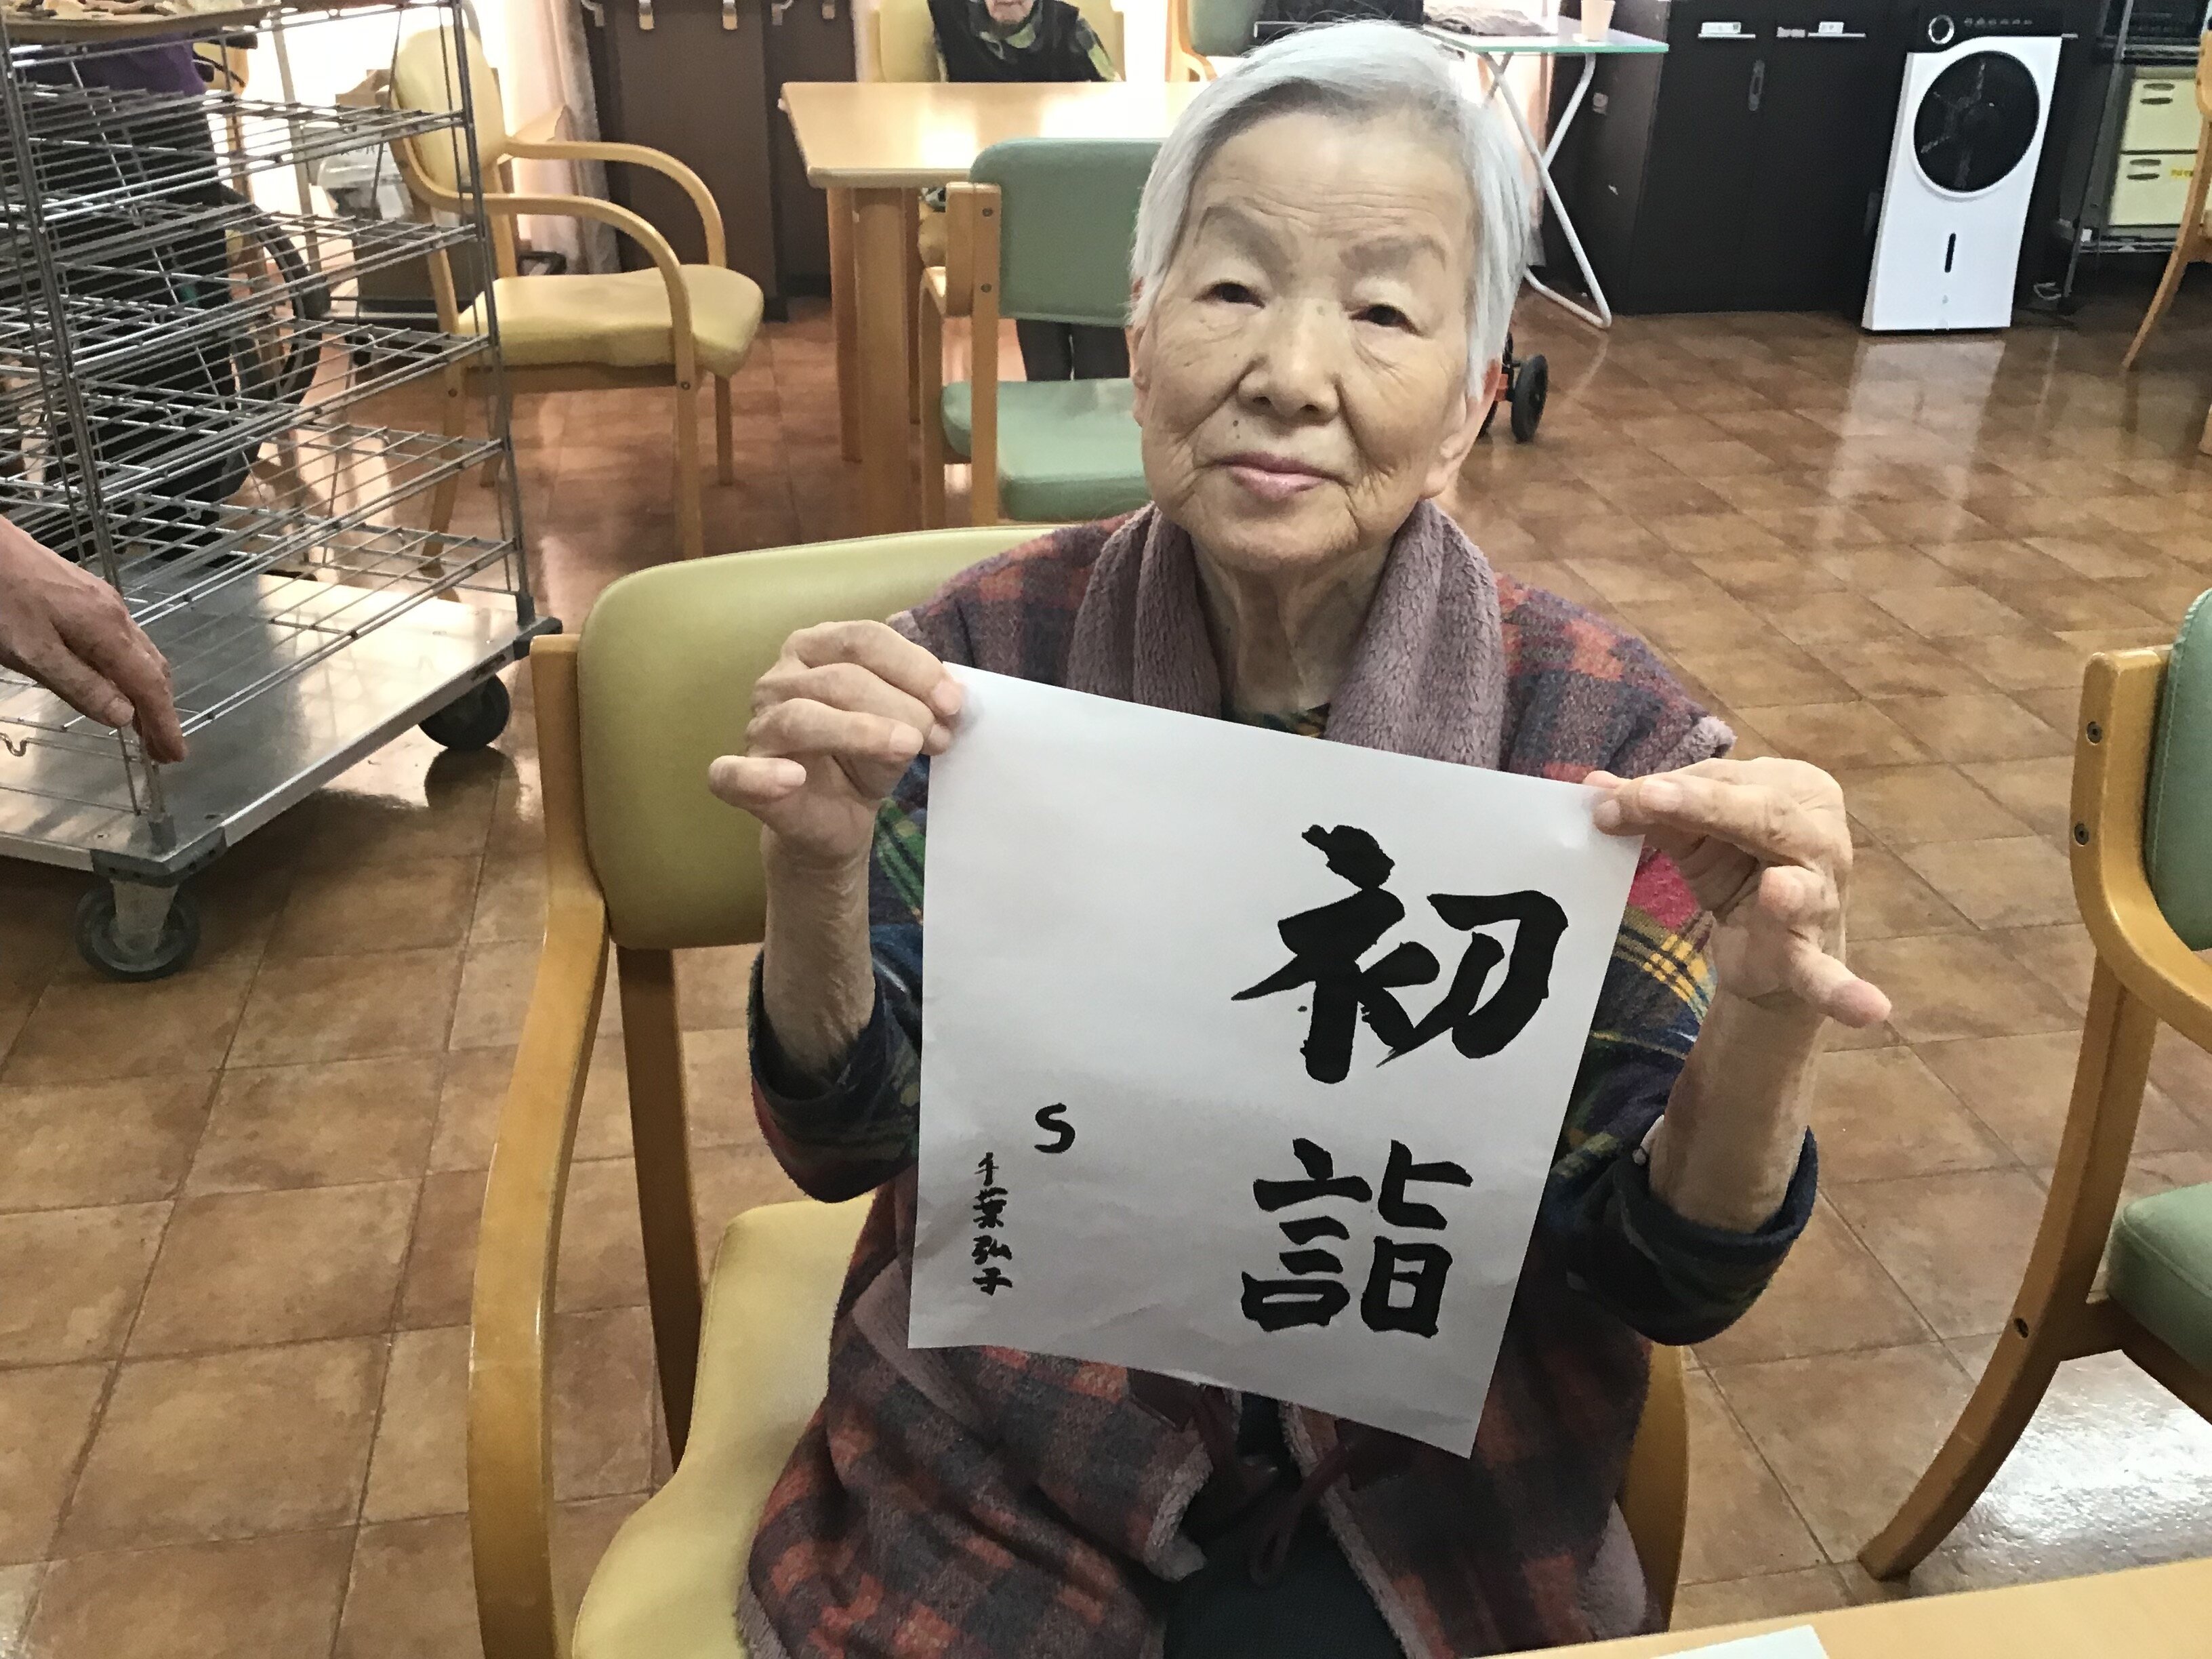 初詣
S
千葉弘子